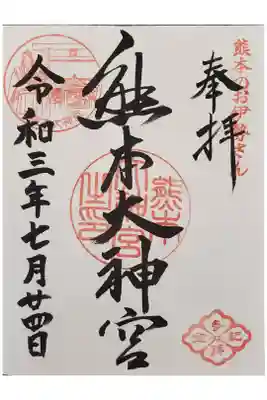 熊本のお伊勢さん
奉拝
熊本大神宮
令和三年七月廿四日